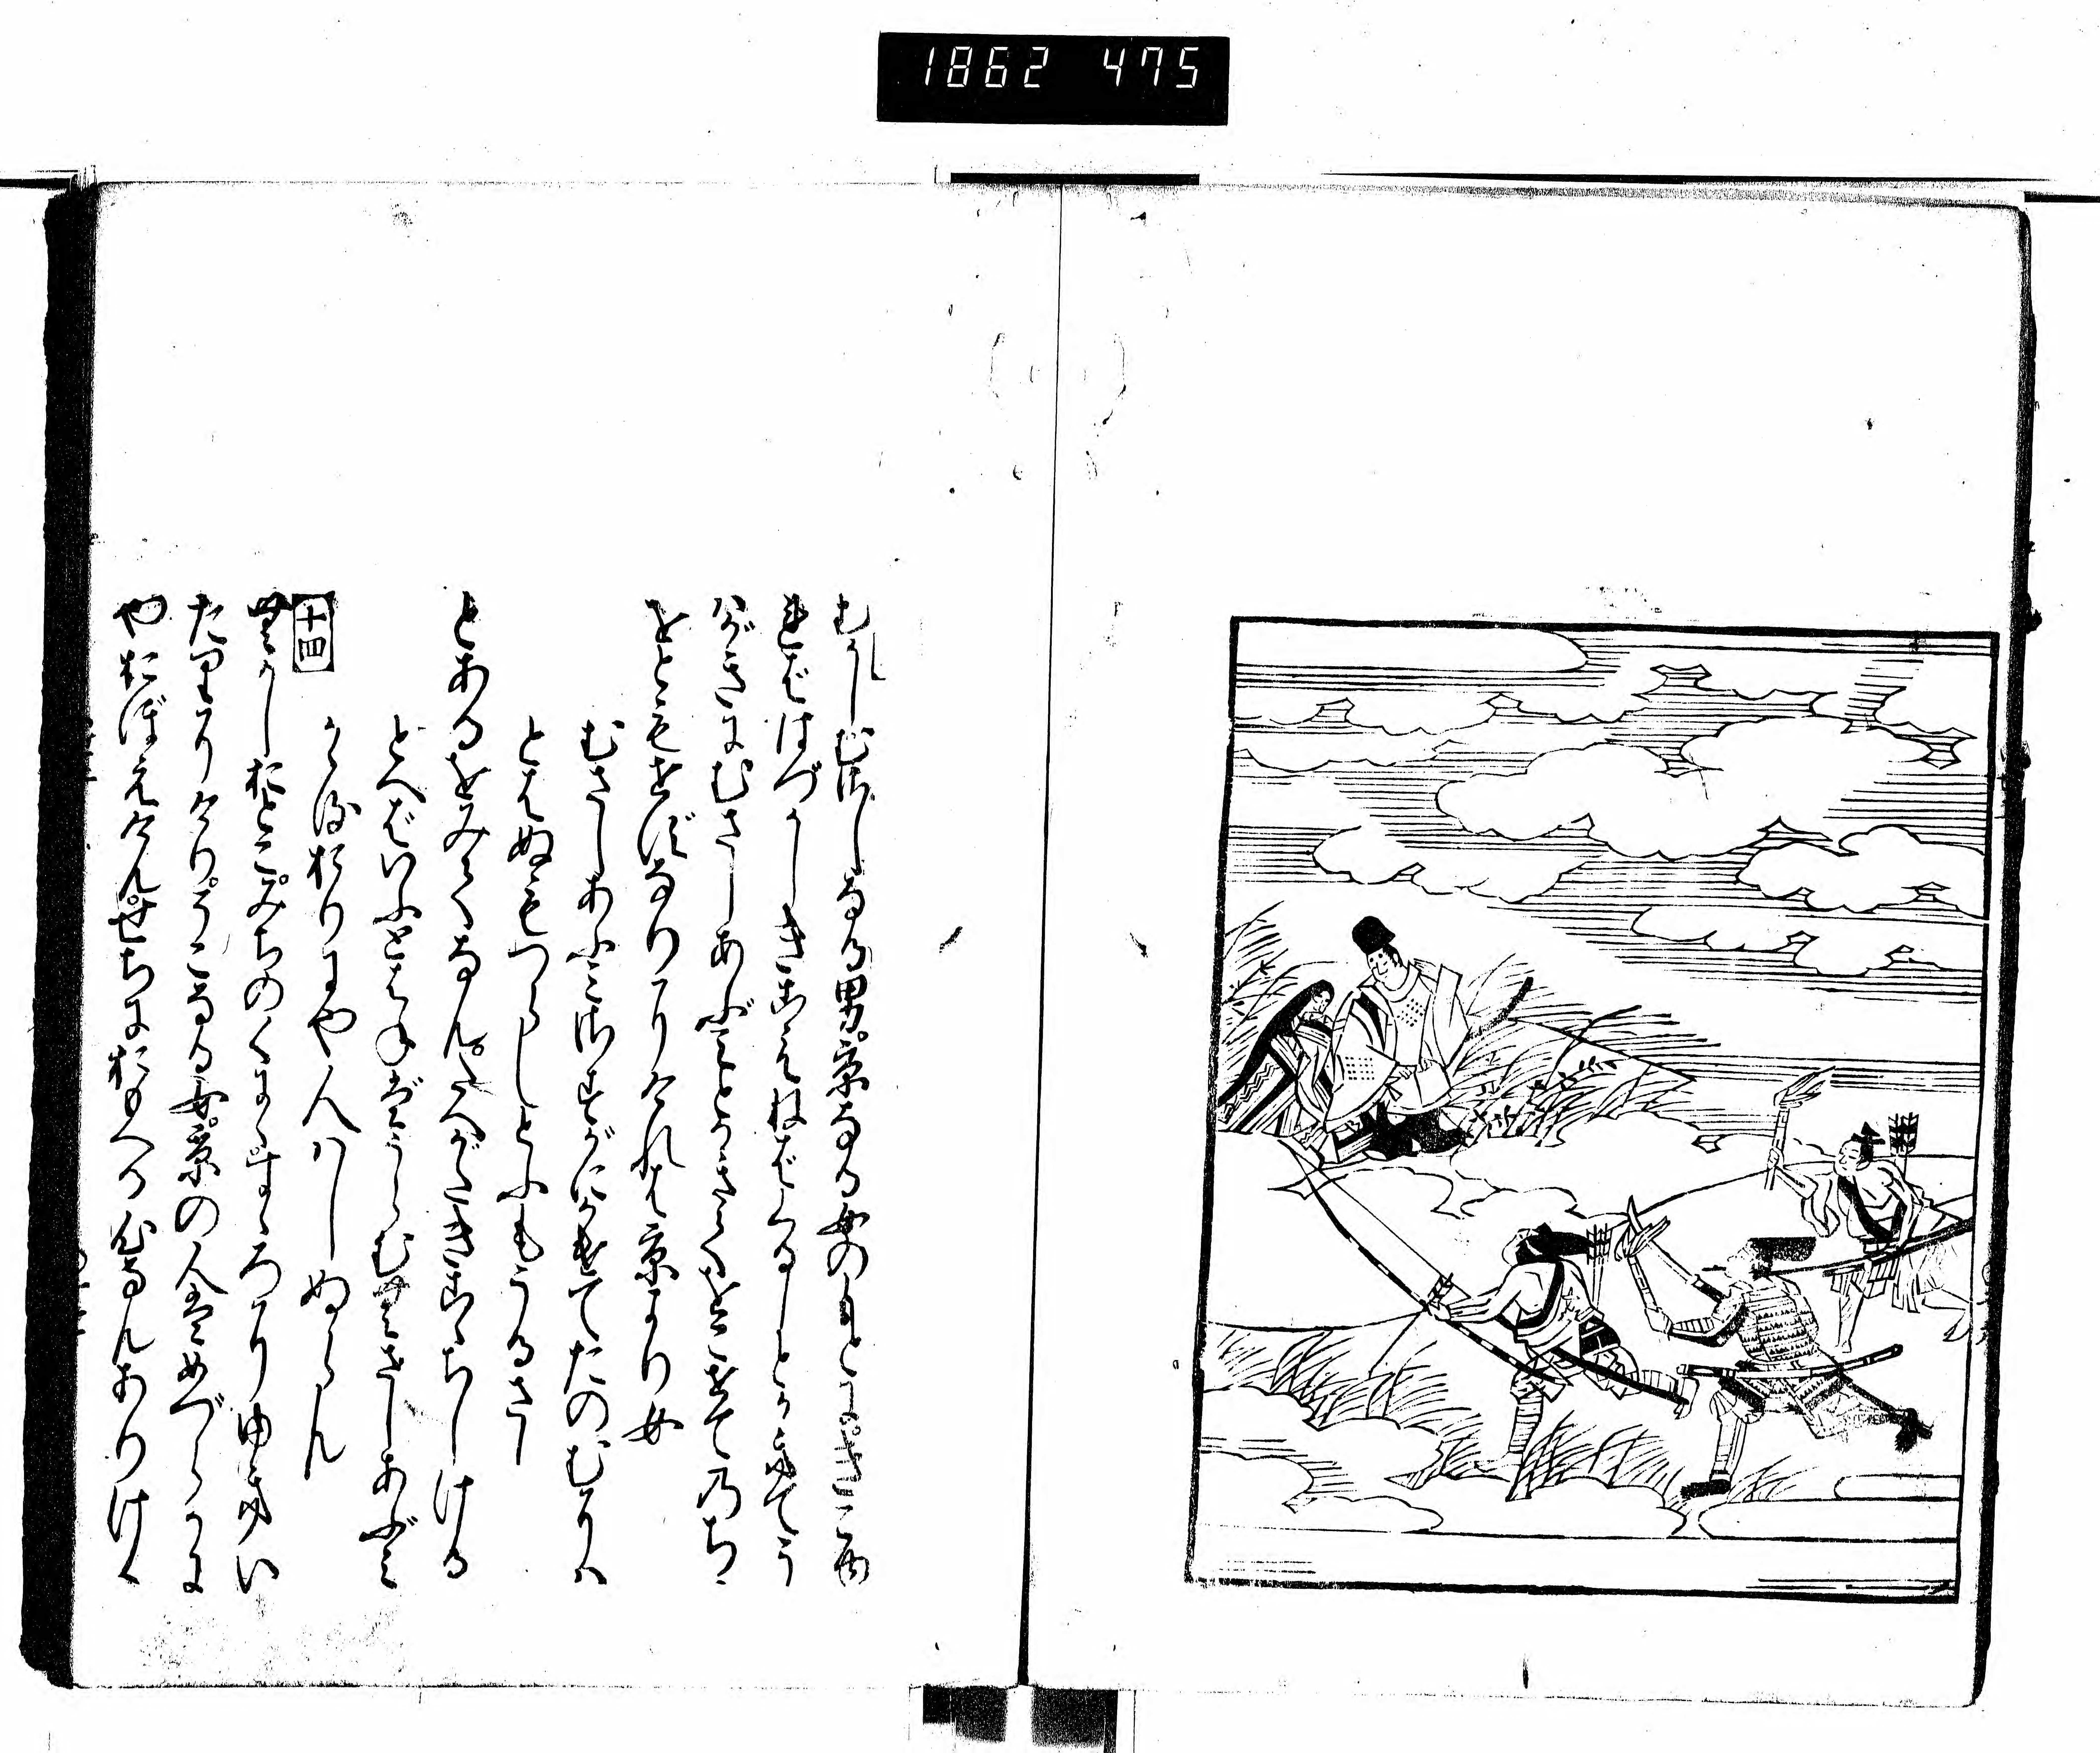 1862 475
むかしむさしなる男。京なる女のもとに。きこゆ
れば はづかしきこえねばくるしとかきてう
はがきにむさしあぶみとかきてをこせて乃ち
をともせずなりにければ京より女
むさしあふみさすがにかけてたのむには
とはぬもつらしとふもうるさし
とあるをみてなん。たへがたきこゝちしける
とへばいふとはねばうらむむさしあぶみ
かゝるおりにや人はしぬらん
十四
むかしおとこ。みちのくにゝすゞろにゆきい
たりにけり。そこなる女。京の人はめづらかに
やおぼえけん。せちにおもへる心なんありける